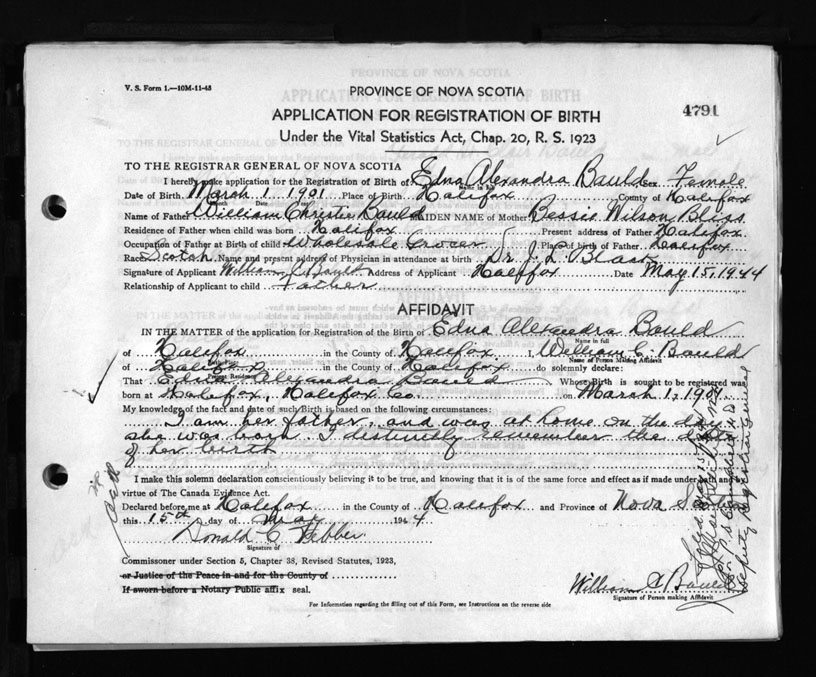 V. S. Form 1.—10M-11-43
PROVINCE OF NOVA SCOTIA
APPLICATION FOR REGISTRATION OF BIRTH
4791
Under the Vital Statistics Act, Chap. 20, R. S. 1923
TO THE REGISTRAR GENERAL OF NOVA SCOTIA
I hereby make application for the Registration of Birth of Edna Alexandra Bauld Sex Female
Date of Birth March 1 1901 Place of Birth Halifax County of Halifax
Name of Father William Christie Bauld MAIDEN NAME of Mother Bessie Wilson Bligh
Residence of Father when child was born Halifax Present address of Father Halifax
Occupation of Father at Birth of child Wholesale Grocer Place of birth of Father Halifax
Race Scotch Name and present address of Physician in attendance at birth Dr. J. L. Black
Signature of Applicant William C Bauld Address of Applicant Halifax Date May 15, 1944
Relationship of Applicant to child Father
AFFIDAVIT
IN THE MATTER of the application for Registration of the Birth of Edna Alexandra Bauld
Name in full
of Halifax in the County of Halifax I, William C. Bauld
Name of Person Making Affidavit
of Halifax in the County of Halifax do solemnly declare:
Present Residence
That Edna Alexandra Bauld Whose Birth is sought to be registered was
born at Halifax, Halifax Co. on March 1, 1901
My knowledge of the fact and date of such Birth is based on the following circumstances:
I am her father, and was at home on the day
she was born. I distinctly remember the date
of her birth
I make this solemn declaration conscientiously believing it to be true, and knowing that it is of the same force and effect as if made under oath and by
virtue of The Canada Evidence Act.
Declared before me at Halifax in the County of Halifax and Province of Nova Scotia
this 15th day of May 1944
Donald C Webber
Signature of
Commissioner under Section 5, Chapter 38, Revised Statutes, 1923,
or Justice of the Peace in and for the County of
If sworn before a Notary Public affix seal.
William C Bauld
Signature of Person making Affidavit
For Information regarding the filling out of this Form, see Instructions on the reverse side
Deputy Registrar General